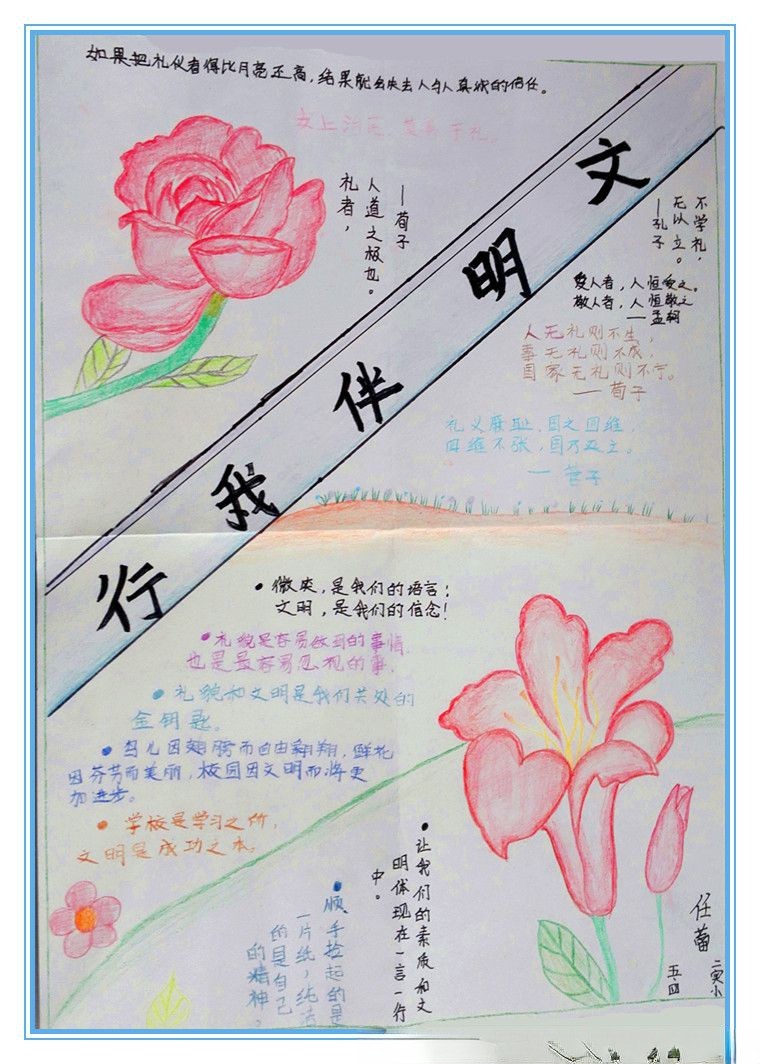 如果把礼仪看得比月亮还高,结果就会失去人与人真诚的信任。
安上治民,莫善于礼。
礼者,
人道之极也。
—荀子
文明伴我行
不学礼,
无以立。
—孔子
爱人者,人恒爱之。
敬人者,人恒敬之
—孟轲
人无礼则不生,
事无礼则不成,
国家无礼则不宁。
—荀子
礼义廉耻,国之四维,
四维不张,国乃灭亡。
—管子
•微笑,是我们的语言;
文明,是我们的信念!
•礼貌是容易做到的事情,
也是最容易忽视的事.
•礼貌和文明是我们共处的
金钥匙。
•鸟儿因翅膀而自由翱翔,鲜花
因芬芳而美丽,校园因文明而将更
加进步。
•学校是学习之所,
文明是成功之本。
•让我们的素质和文
明体现在一言一行
中。
•顺手捡起的是
一片纸,纯洁
的是自己
的精神。
任蕾
二实小
五.四